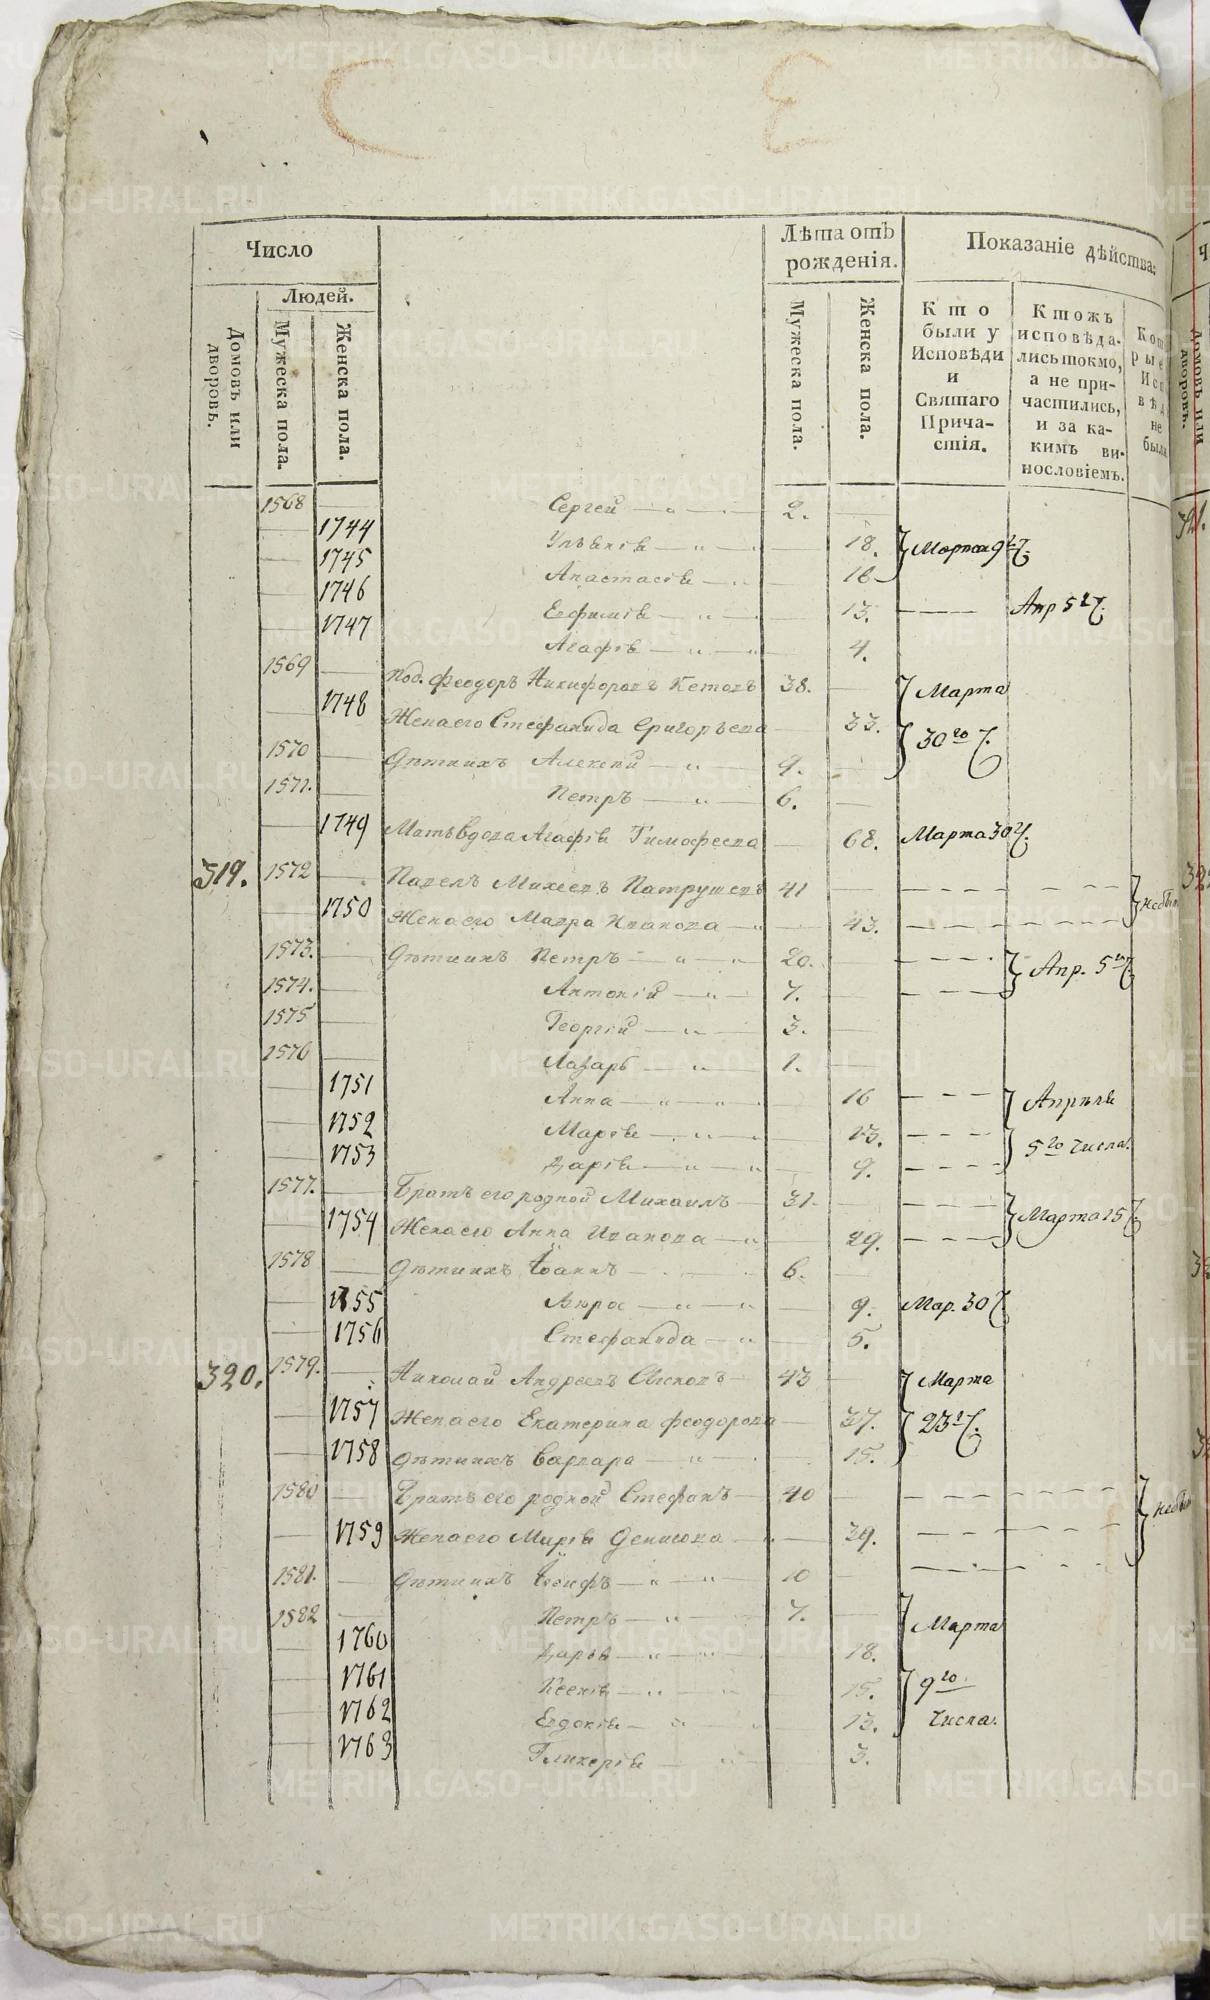 Число
Людей.
Домовъ или дворовъ.
Мужеска пола.
Женска пола.
Лѣта отъ рожденія.
Мужеска пола.
Женска пола.
Показаніе дѣйства:
Кто были у Исповѣди и Святаго Причастія.
Ктожъ исповѣдались токмо, а не причастились, и за какимъ винословіемъ.
1568 Сергей — „ — 2.
1744 Ульянія — „ — 18. Марта 9 ч.
1745 Анастасія — „ — 16
1746 Евфимія — „ — 13. Апр 5 ч.
1747 Агафія — „ — „ 4.
1569 Под. Феодоръ Никифоровъ Кетовъ 38. Марта
1748 Жена его Стефанида Григорьева 33. 30го ч.
1570 Дѣти ихъ Алексей — „ — 9.
1571. Петръ — „ — 6.
1749 Мать вдова Агафія Тимофеева 68. Марта 30 ч.
319. 1572 Павелъ Михеевъ Патрушевъ 41
1750 Жена его Мавра Иванова — „ 43.
1573. Дѣти ихъ Петръ — „ — „ 20. Апр. 5го ч.
1574. Антоній — „ — 7.
1575 Георгій — „ — 3.
1576 Лазарь — „ — 1.
1751 Анна — „ — „ 16 Апрѣля
1752 Марія — „ — 13. 5го числа.
1753 Дарія — „ — „ 9.
1577. Братъ его родной Михаилъ — 31.
1754 Жена его Анна Иванова — „ 29. Марта 25 ч.
1578 Дѣти ихъ Іоаннъ — 6.
1755 — „ — „ 9. Мар. 30 ч.
1756 Стефанида — „ 5.
320. 1579. Николай Андреевъ 43 Марта
1757 Жена его Екатерина Феодорова 37. 23 ч.
1758 Дѣти ихъ Варвара — „ — 15.
1580 Братъ его родной Стефанъ — 40
1759 Жена его Марія Денисова — „ 39.
1581. Дѣти ихъ Іосифъ — „ — „ 10
1582 Петръ — „ — 7. Марта
1760 Дарья — „ — „ 18.
1761 Ксенія — „ — „ 15. 9го
1762 Евдокія — „ 13. числа.
1763 Гликерія — „ 3.